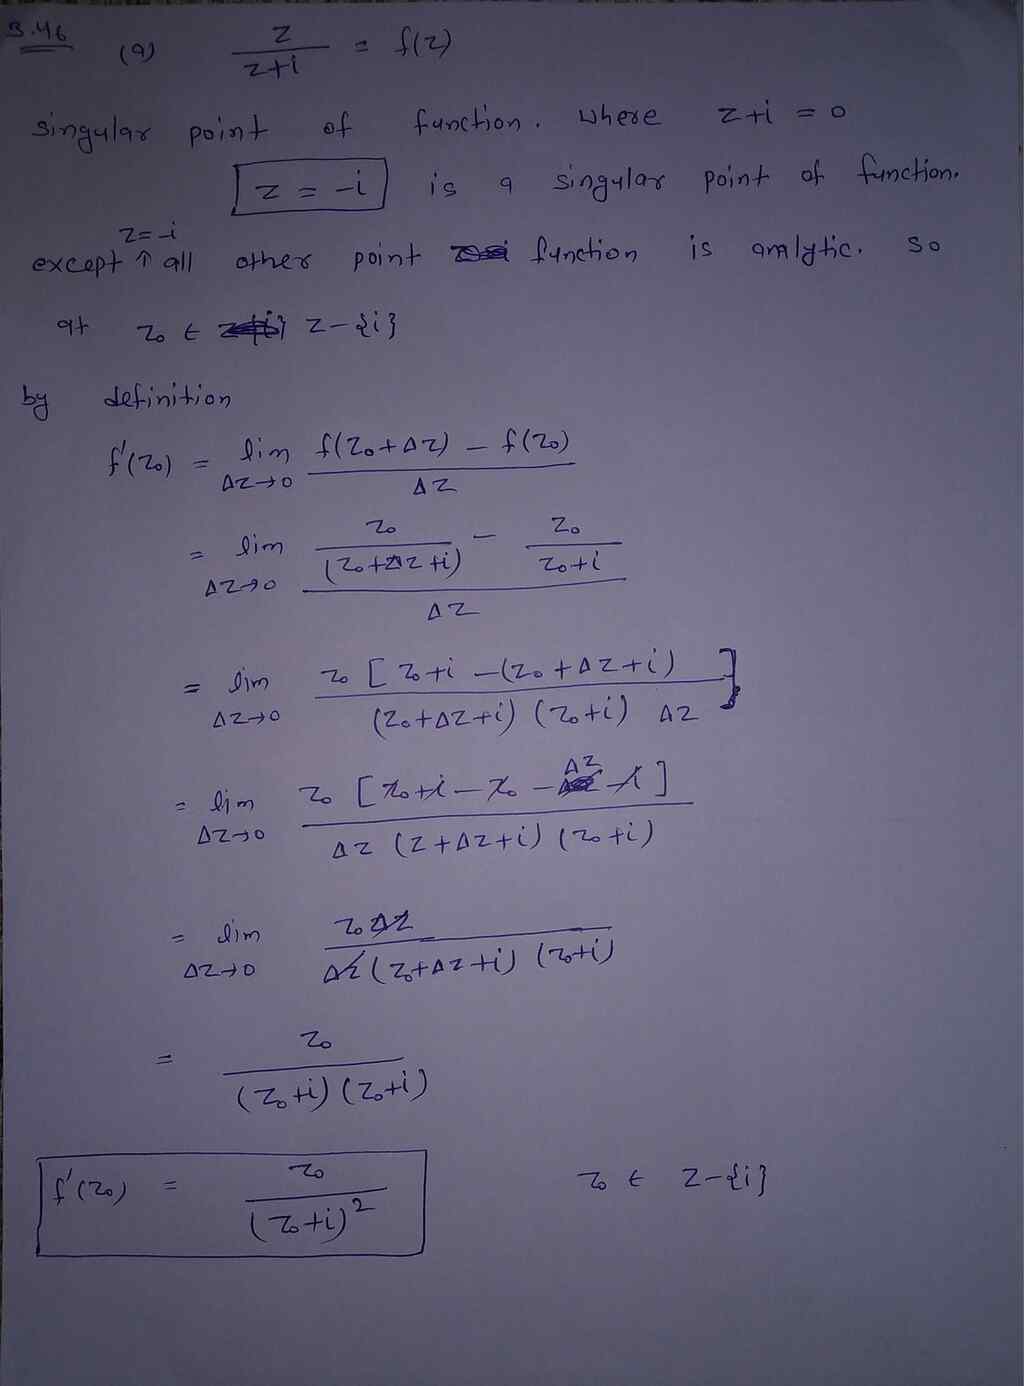 3.46 (a) z/(z+i) = f(z)
singular point of function. where z+i = 0
z = -i is a singular point of function.
except ↑ z=-i all other point function is analytic. so
at z₀ ∈ z-{i}
by definition
f'(z₀) = lim Δz→0 (f(z₀+Δz) - f(z₀))/Δz
= lim Δz→0 (z₀/(z₀+Δz+i) - z₀/(z₀+i))/Δz
= lim Δz→0 z₀ [z₀+i -(z₀+Δz+i)]/((z₀+Δz+i) (z₀+i) Δz)
= lim Δz→0 z₀ [z₀+i-z₀-Δz-i]/(Δz (z+Δz+i) (z₀+i))
= lim Δz→0 z₀Δz/(Δz(z₀+Δz+i) (z₀+i))
= z₀/((z₀+i) (z₀+i))
f'(z₀) = z₀/(z₀+i)² z₀ ∈ z-{i}